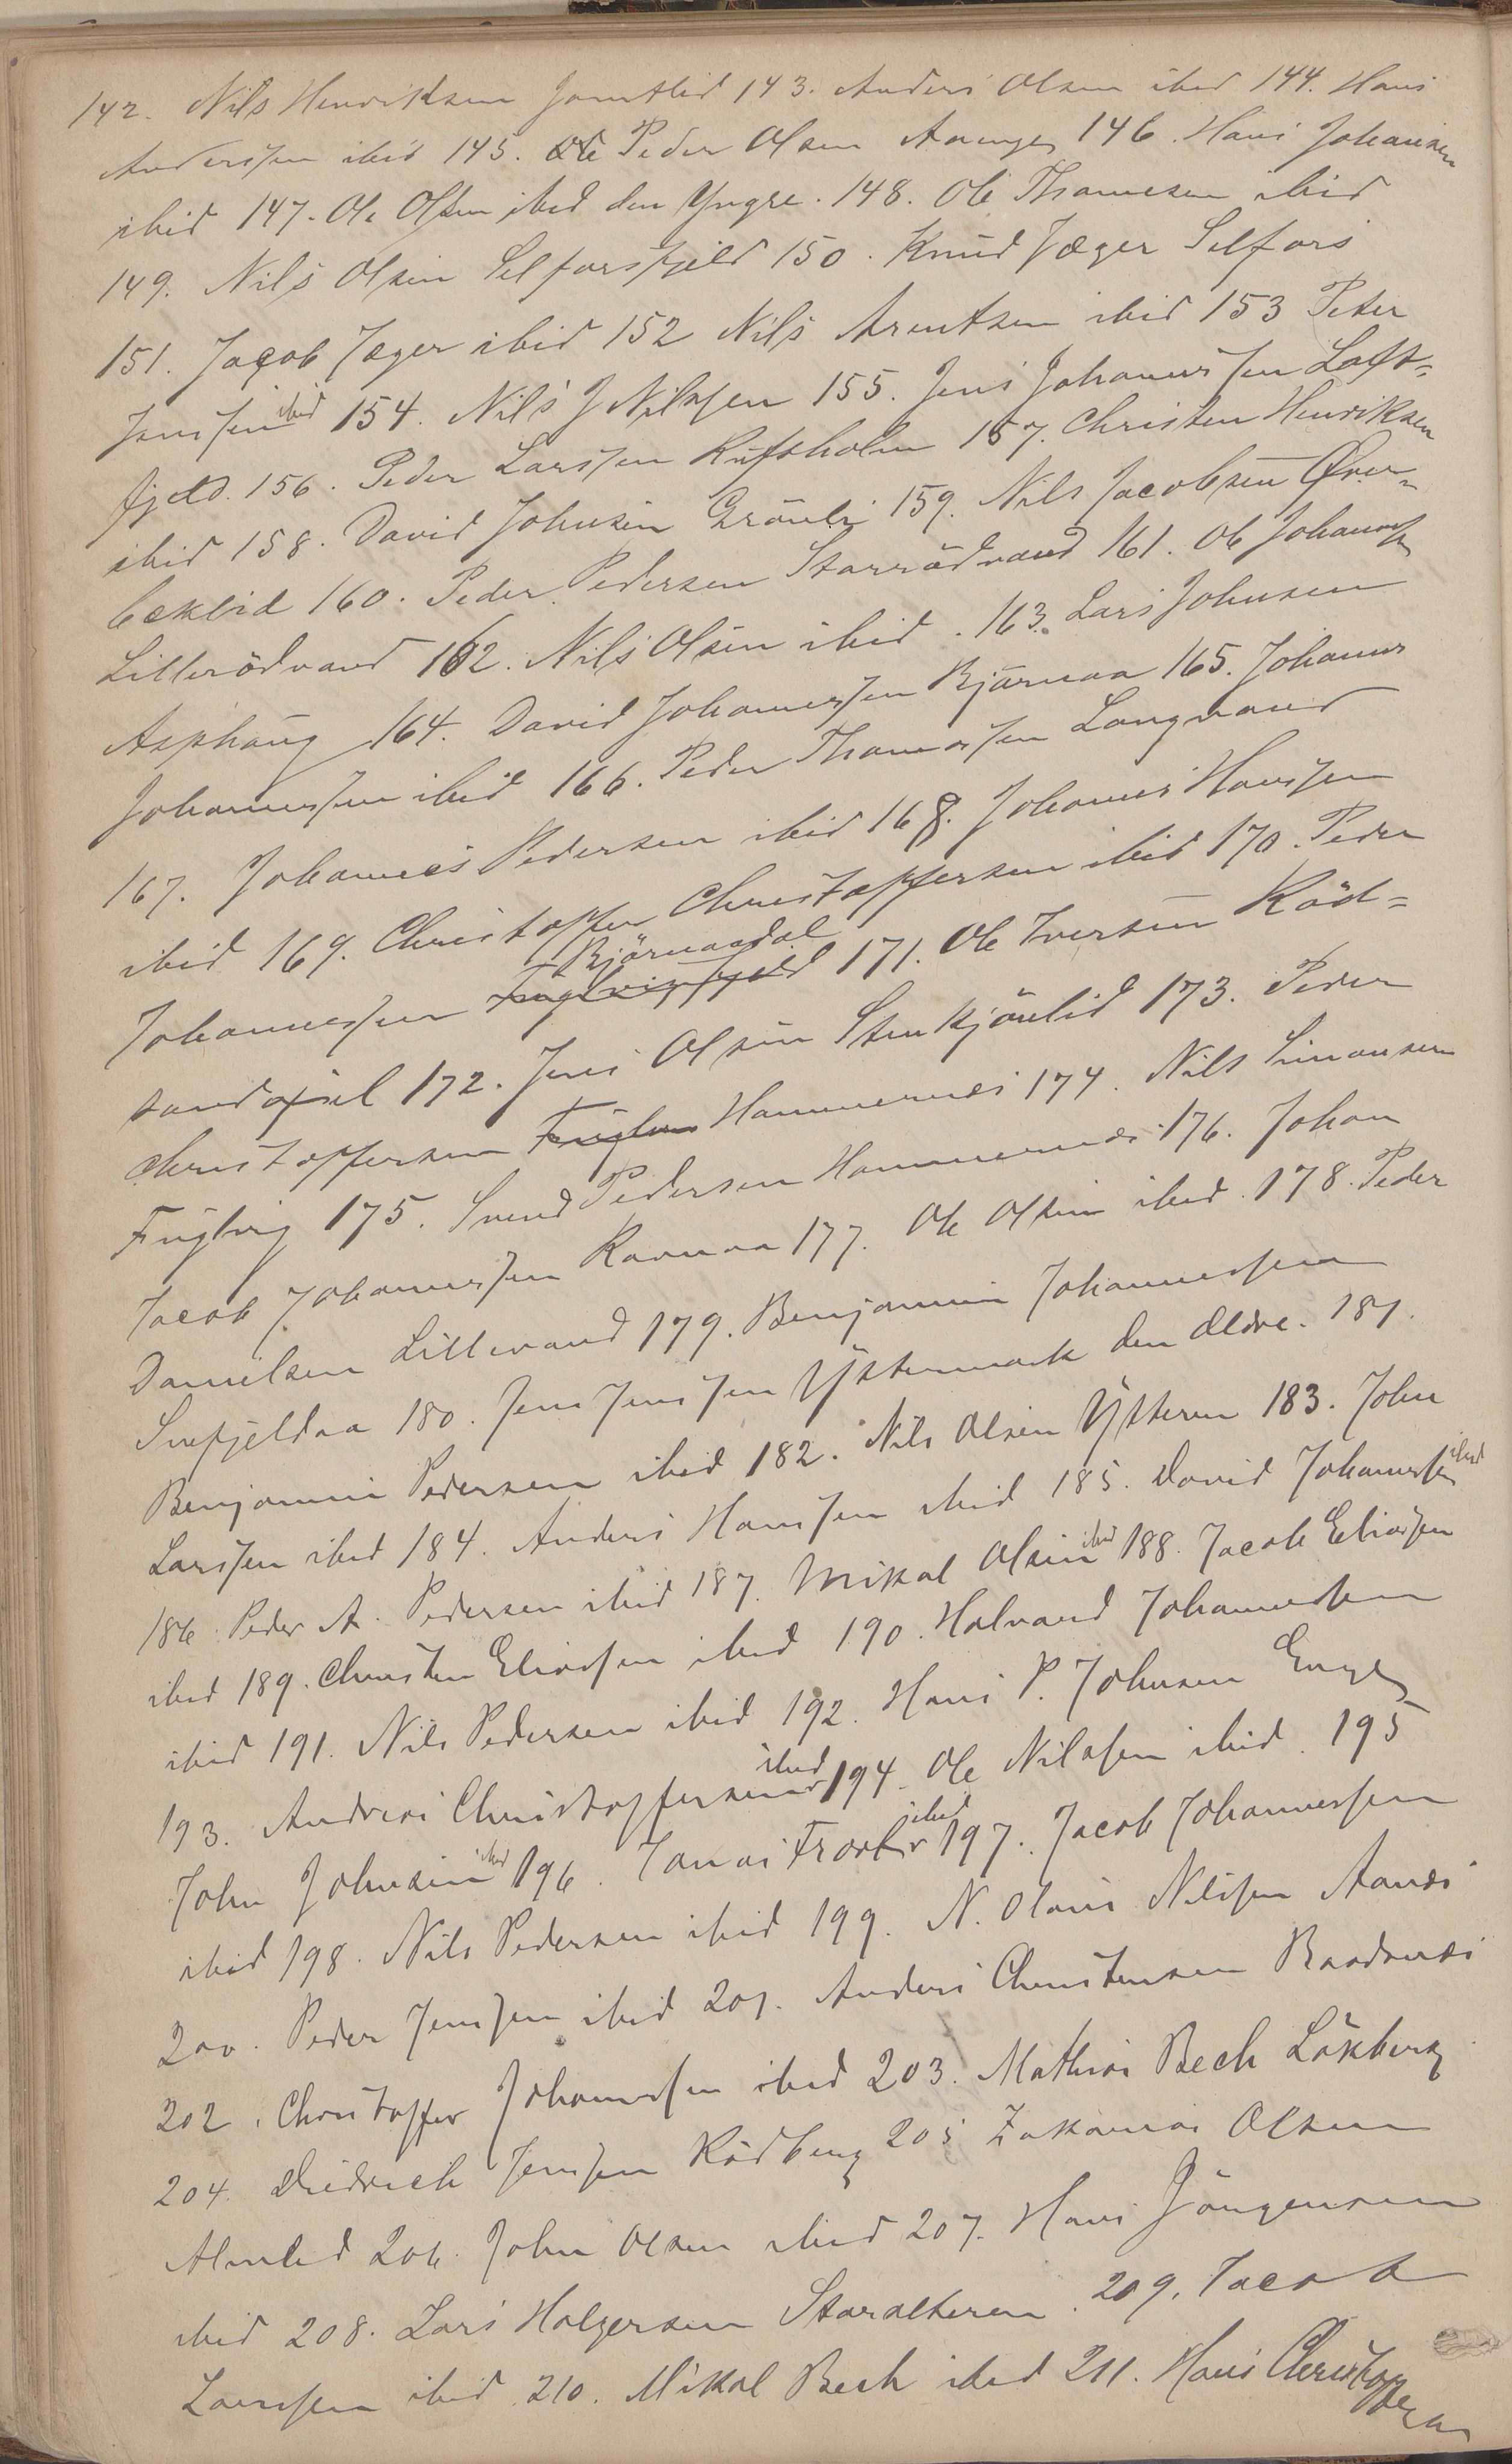 142. Nils Henriksen Jamtlid 143. Anders Olsen ibid 144. Hans
Anderssen ibid 145. Peder Olsen Avenge 146. Hans Johansen
ibid 147. Ole Olsen ibid den Yngre. 148. Ole Thomesen ibid
149. Nils Olsen Selforsfjeld 150. Knud Jæger Selfors
151. Jacob Jæger ibid 152 Nils Arentsen ibid 153 Peter
Jenssen ibid 154. Nils J Nilssen 155. Jens Johanessen Loft-
fjeld. 156. Peder Larssen Rufsholm 157. Christen Henriksen
ibid 158. David Johnsen Grönli 159. Nils Jacobsen Över-
beklid 160. Peder Pedersen Storrödvand 161. Ole Johanss
Lillerödvand 162. Nils Olsen ibid. 163. Lars Johnsen
Asphaug 164. David Johannessen Bjärnaa 165. Johannes
Johannessen ibid 166. Peder Thomassen Langvand
167. Johannes Pedersen ibid 168. Johannes Hanssen
ibid 169. Christoffer Christoffersen ibid 170. Peder
Johannessen Fuglvigfjeld Björnaadal 171. Ole Iversen Röd-
sandøiel 172. Jens Olsen Stenkjönlid 173. Peder
Christoffersen Hammernæs 174. Nils Simonsen
Fuglvig 175. Svend Pedersen Hammernæs 176. Johan
Jacob Johannessen Ravnaa 177. Ole Olsen ibid. 178. Peder
Danielsen Littlevand 179. Benjamin Johannessen
Snefjeldaa 180. Jens Jenssen Yttermark den Ældre. 181.
Benjamin Pedersen ibid 182. Nils Olsen Ytteren 183. John
Larssen ibid 184. Anders Hanssen ibid 185. David Johannessen ibid
186 Peder A. Pedersen ibid 187. Mikal Olsen ibid 188. Jacob Eliassen
ibid 189. Christen Eliassen ibid 190. Halvard Johannessen
ibid 191. Nils Pedersen ibid 192. Hans P. Johnsen Enge
193. Andreas Christoffersen ibid 194. Ole Nilssen ibid. 195
John Johnsen ibid 196. Jonas ibid 197. Jacob Johannessen
ibid 198. Nils Pedersen ibid 199. N. Olaus Nilssen Aanæs
200. Peder Jenssen ibid 201. Anders Christensen Baadsnæs
202. Christoffer Johannessen ibid 203. Mathias Bech Lökberg
204. Diedrich Jenssen Rödberg 205 Zakarias Olsen
Almlid 206. John Olsen ibid 207. Hans Jörgensen
ibid 208. Lars Holgersen Storalteren. 209. Jacob
Larssen ibid 210. Mikal Bech ibid 211. Hans Christoffersen